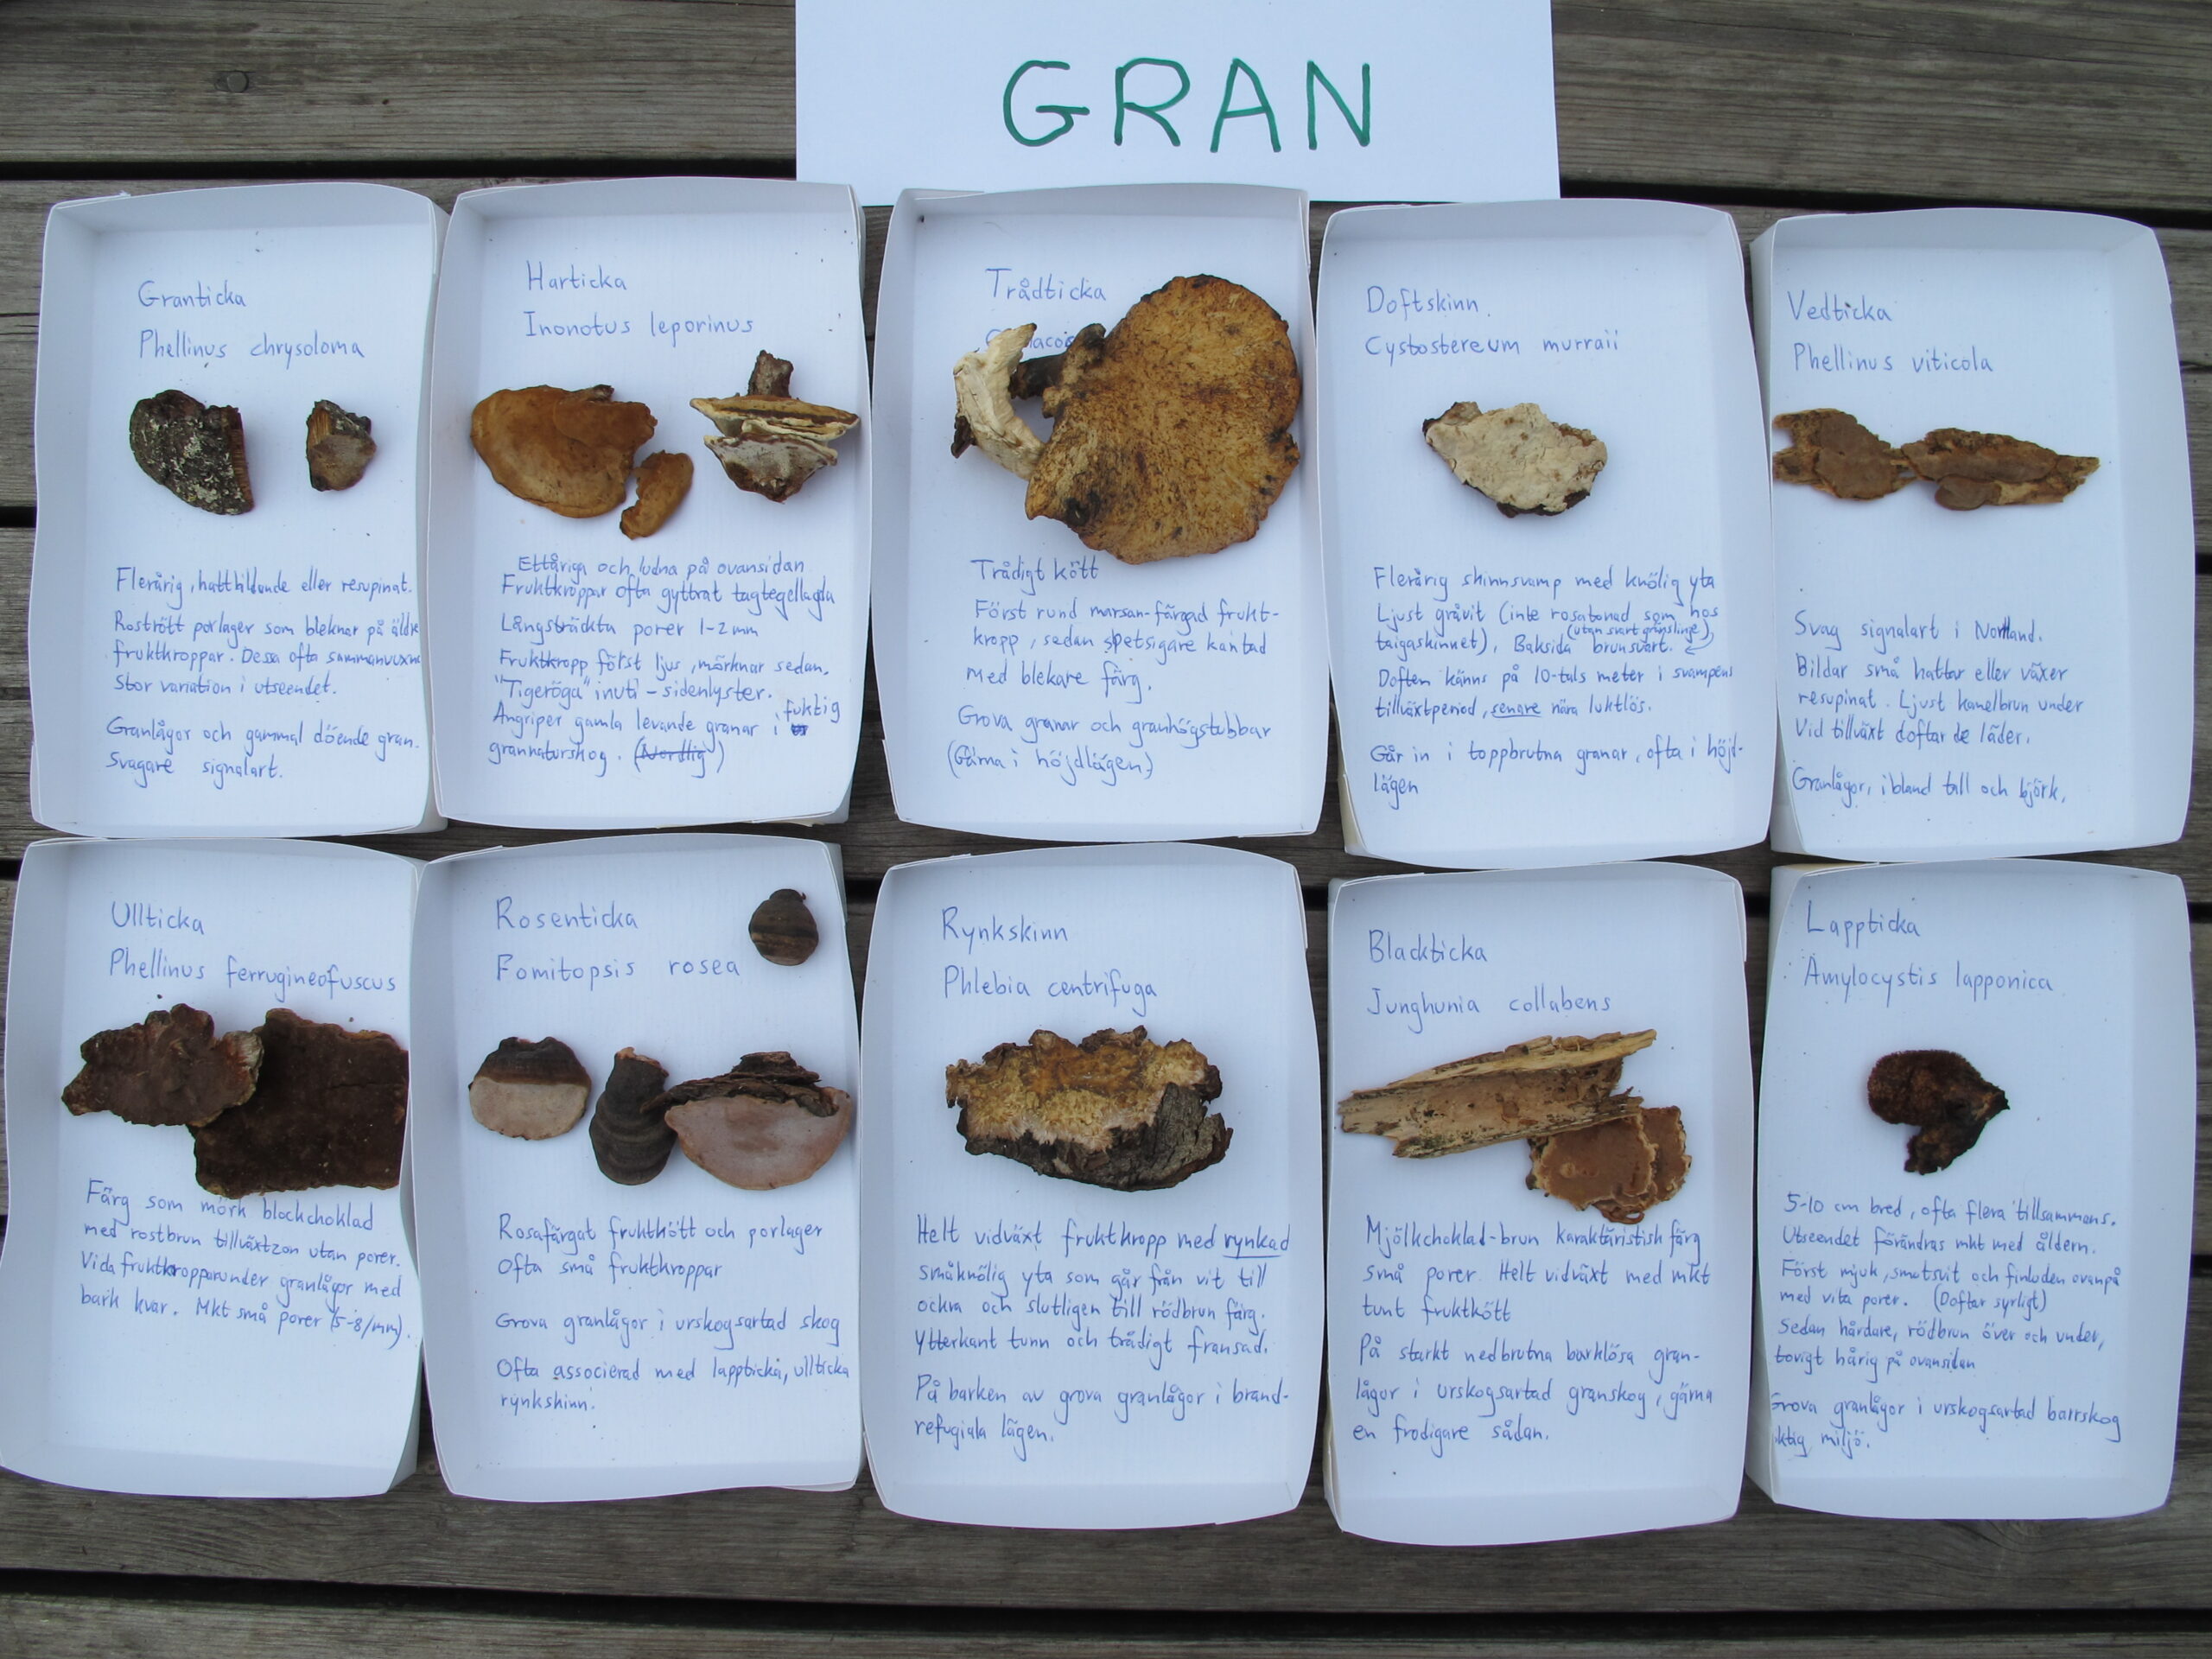 GRAN
Granticka
Phellinus chrysoloma
Flerårig, hattbildande eller resupinat.
Rostrött porlager som bleknar på äldre
fruktkroppar. Dessa ofta sammanvuxna
Stor variation i utseendet.
Granlågor och gammal döende gran.
Svagare signalart.
Harticka
Inonotus leporinus
Ettåriga och ludna på ovansidan
Fruktkroppar ofta gyttrat tagtegellagda
Långsträckta porer 1-2 mm
Fruktkropp först ljus, mörknar sedan.
"Tigeröga" inuti - sidenlyster.
Angriper gamla levande granar i fuktig
grannaturskog. (Nordlig)
Trådticka
Trådigt kött
Först rund marsan-färgad frukt-
kropp, sedan spetsigare kantad
med blekare färg.
Grova granar och granhögstubbar
(Gärna i höjdlägen.)
Doftskinn.
Cystostereum murraii
Flerårig skinnsvamp med knölig yta
Ljust gråvit (inte rosatonad som hos
taigaskinnet), Baksida brunsvart. (utan svart gränslinje)
Doften känns på 10-tals meter i svampens
tillväxtperiod, senare nära luktlös.
Går in i toppbrutna granar, ofta i höjd-
lägen
Vedticka
Phellinus viticola
Svag signalart i Norrland.
Bildar små hattar eller växer
resupinat. Ljust kanelbrun under
Vid tillväxt doftar de läder.
Granlågor, ibland tall och björk.
Ullticka
Phellinus ferrugineofuscus
Färg som mörk blockchoklad
med rostbrun tillväxtzon utan porer.
Vida fruktkroppar under granlågor med
bark kvar. Mkt små porer (5-8/mm).
Rosenticka
Fomitopsis rosea
Rosafärgat fruktkött och porlager
Ofta små fruktkroppar
Grova granlågor i urskogsartad skog
Ofta associerad med lappticka, ullticka
rynkskinn.
Rynkskinn
Phlebia centrifuga
Helt vidväxt fruktkropp med rynkad
småknölig yta som går från vit till
ockra och slutligen till rödbrun färg.
Ytterkant tunn och trådigt fransad.
På barken av grova granlågor i brand-
refugiala lägen.
Blackticka
Junghunia collabens
Mjölkchoklad-brun karaktäristisk färg
små porer. Helt vidväxt med mkt
tunt fruktkött
På starkt nedbrutna barklösa gran-
lågor i urskogsartad granskog, gärna
en frodigare sådan.
Lappticka
Amylocystis lapponica
5-10 cm bred, ofta flera tillsammans.
Utseendet förändras mkt med åldern.
Först mjuk, smutsvit och finluden ovanpå
med vita porer. (Doftar syrligt)
Sedan hårdare, rödbrun över och under,
tovigt hårig på ovansidan
Grova granlågor i urskogsartad barrskog
miljö.